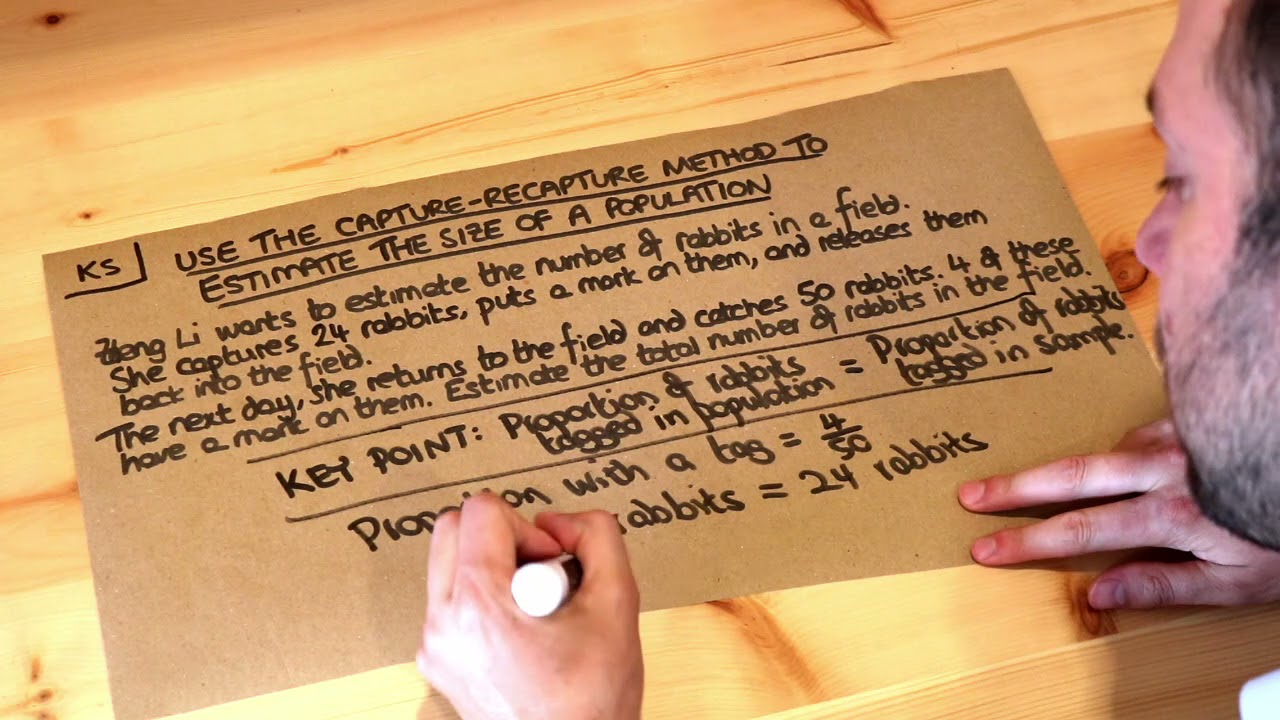 KS
USE THE CAPTURE-RECAPTURE METHOD TO
ESTIMATE THE SIZE OF A POPULATION
Li wants to estimate the number of rabbits in a field.
She captures 24 rabbits, puts a mark on them, and releases them
back into the field.
The next day, she returns to the field and catches 50 rabbits. 4 of these
have a mark on them. Estimate the total number of rabbits in the field.
KEY POINT: Proportion of rabbits = Proportion of rabbits
tagged in population tagged in sample.
with a tag = 4/50
rabbits = 24 rabbits